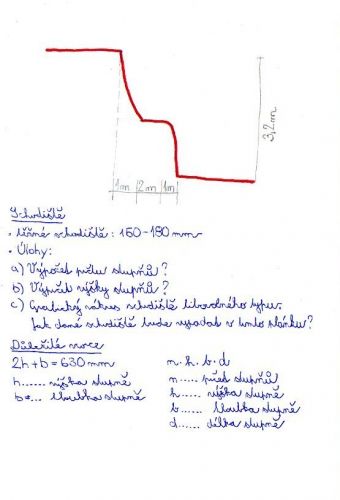 3,2m
1m 2m 1m
Schodiště
• běžné schodiště: 150-180 mm
• Úlohy:
a) Výpočet počtu stupňů?
b) Výpočet výšky stupňů?
c) Grafický nákres schodiště libovolného typu.
Jak dané schodiště bude vypadat v tomto plánku?
Důležité vzorce
2h + b = 630 mm
h...... výška stupně
b... hloubka stupně
n. h. b. d
n..... počet stupňů
h..... výška stupně
b..... hloubka stupně
d..... délka stupně